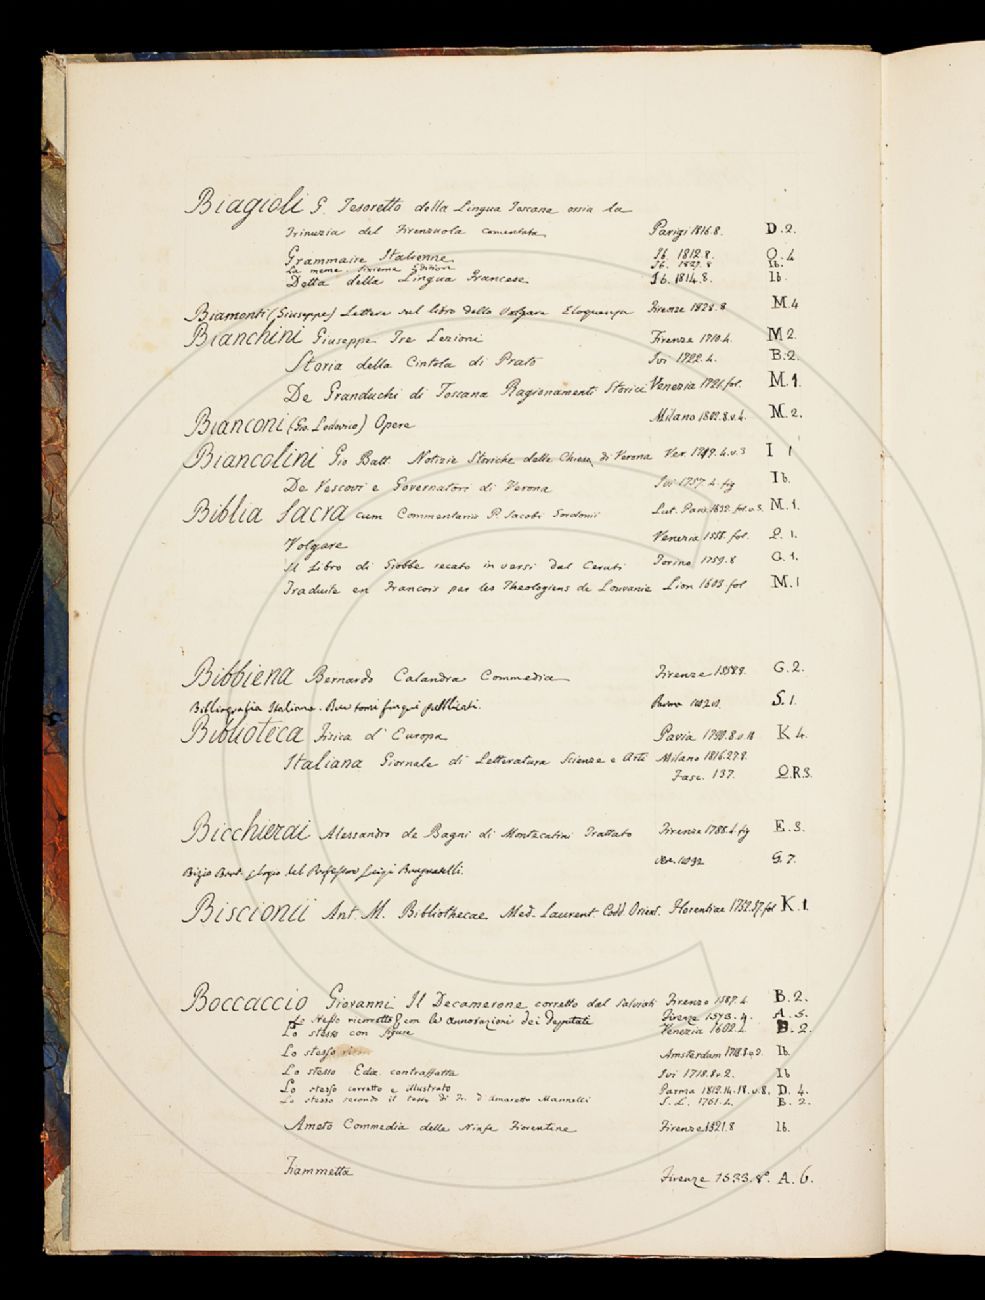 Biagioli G. Tesoretto della Lingua Toscana ossia la
Trinuzia del Firenzuola comentata Parigi 1816.8. D.2.
Grammaire Italienne Ib. 1812.8. Q.4
La meme sixieme Edition Ib. 1827.8 Ib.
Detta della Lingua Francese Ib. 1814.8. Ib.
Biamonti (Giuseppe) Lettera sul libro della Volgare Eloquenza Firenze 1828.8 M.4
Bianchini Giuseppe Tre Lezioni Firenze 1710.4. M 2.
Storia della Cintola di Prato Ivi 1722.4. B.2.
De Granduchi di Toscana Ragionamenti Storici Venezia 1721.fol. M.1.
Bianconi (Gio. Lodovico) Opere Milano 1802.8.v.4. M.2.
Biancolini Gio Batt. Notizie Storiche delle Chiese di Verona Ver. 1749.4.v.3 I 1
De Vescovi e Governatori di Verona Ivi 1757.4.fig Ib.
Biblia Sacra cum Commentariis P. Jacobi Gordonii Lut. Paris. 1632.fol.v.3. M.1.
Volgare Venezia 1558. fol. Q.1.
Il Libro di Giobbe recato in versi dal Ceruti Torino 1759.8 G.1.
Traduite en Francois par les Theologiens de Louvanie Lion 1603 fol M.1
Bibbiena Bernardo Calandra Commedia Firenze 1558.8. G.2.
Bibliografia Italiana. Due tomi finqui pubblicati. S.1.
Biblioteca Fisica d'Europa Pavia 1790.8.v.18 K 4.
Italiana Giornale di Letteratura Scienze e Arti Milano 1816.27.8.
Fasc. 137. Q.R.S.
Bicchierai Alessandro de Bagni di Montecatini Trattato Firenze 1788.4.fig E.3.
Bizio Bart. Elogio del Professore Luigi Brugnatelli. Ven. 1832 G.7.
Biscionii Ant. M. Bibliothecae Med. Laurent. Codd Orient. Florentiae 1752.57.fol K.1.
Boccaccio Giovanni Il Decamerone corretto dal Salviati Firenze 1587.4. B.2.
Lo stesso ricorretto, e con le annotazioni dei Deputati Firenze 1573.4. A.5.
Lo stesso con figure Venezia 1602.4. B.2.
Lo stesso Amsterdam 1718.8.v.2. Ib.
Lo stesso Ediz. contraffatta Ivi 1718.8.v.2. Ib
Lo stesso corretto e illustrato Parma 1812.14.18.v.8. D.4.
Lo stesso secondo il testo di Fr. d Amaretto Mannelli S.L. 1761.4. B.2.
Ameto Commedia delle Ninfe Fiorentine Firenze 1521.8 Ib.
Fiammetta Firenze 1533.8º. A.6.